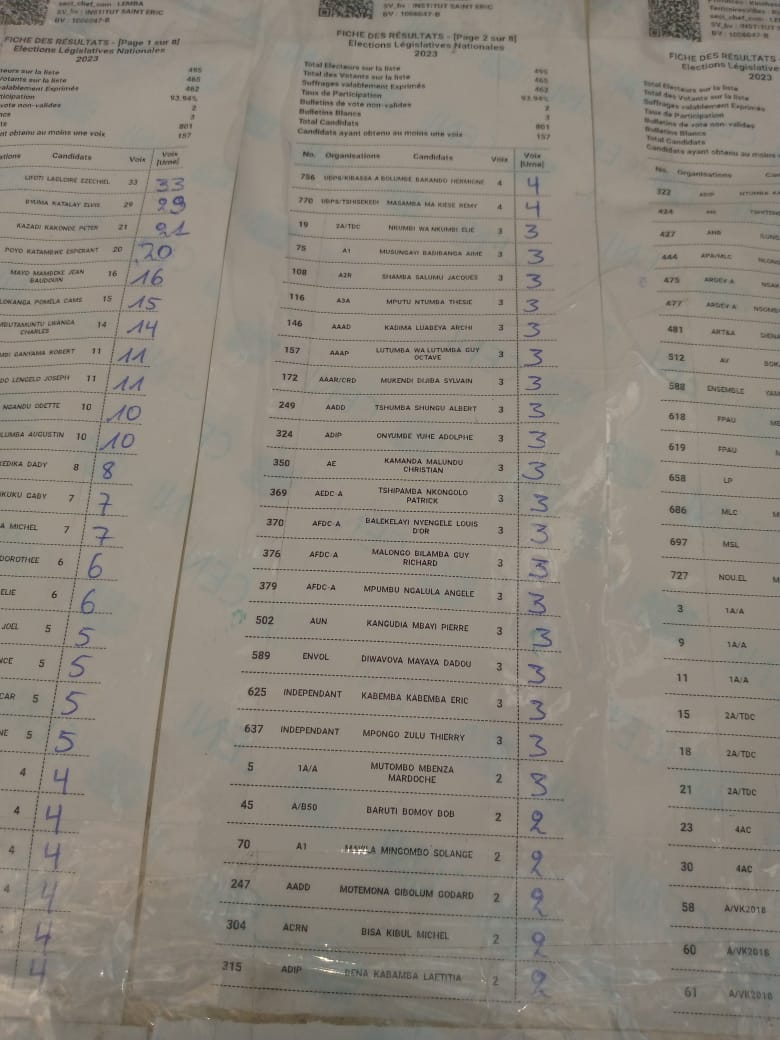 sect_chef_com : LEMBA
SV_bv : INSTITUT SAINT ERIC
BV : 1006047-B
FICHE DES RÉSULTATS - [Page 1 sur 8]
Elections Législatives Nationales
2023
495
465
462
93.94%
2
3
801
157
Candidats Voix Voix [Urne]
LIFOTI LAELOIRE EZECHIEL 33 33
BYUMA KATALAY ELVIS 29 29
KAZADI KAKONDE PETER 21 21
POYO KATAMBWE ESPERANT 20 20
MAYO MAMBEKE JEAN BAUDOUIN 16 16
LOKANGA POMELA CAMS 15 15
CHARLES 14 14
GANYAMA ROBERT 11 11
LENGELO JOSEPH 11 11
NGANDU ODETTE 10 10
AUGUSTIN 10 10
DADY 8 8
GABY 7 7
MICHEL 7 7
DOROTHEE 6 6
ELIE 6 6
JOEL 5 5
5 5
5 5
5 5
4 4
4 4
4 4
4 4
4
4
SV_bv : INSTITUT SAINT ERIC
BV : 1006047-B
FICHE DES RÉSULTATS - [Page 2 sur 8]
Elections Législatives Nationales
2023
Total Electeurs sur la liste 495
Total des Votants sur la liste 465
Suffrages valablement Exprimés 462
Taux de Participation 93.94%
Bulletins de vote non-valides 2
Bulletins Blancs 3
Total Candidats 801
Candidats ayant obtenu au moins une voix 157
No. Organisations Candidats Voix Voix [Urne]
756 UDPS/KIBASSA A BOLUMBE BAKANDO HERMIONE 4 4
770 UDPS/TSHISEKEDI MASAMBA MA KIESE REMY 4 4
19 2A/TDC NKUMBI WA NKUMBI ELIE 3 3
75 A1 MUSUNGAYI BADIBANGA AIME 3 3
108 A2R SHAMBA SALUMU JACQUES 3 3
116 A3A MPUTU NTUMBA THESIE 3 3
146 AAAD KADIMA LUABEYA ARCHI 3 3
157 AAAP LUTUMBA WA LUTUMBA GUY OCTAVE 3 3
172 AAAR/CRD MUKENDI DIJIBA SYLVAIN 3 3
249 AADD TSHUMBA SHUNGU ALBERT 3 3
324 ADIP ONYUMBE YUHE ADOLPHE 3 3
350 AE KAMANDA MALUNDU CHRISTIAN 3 3
369 AEDC-A TSHIPAMBA NKONGOLO PATRICK 3 3
370 AFDC-A BALEKELAYI NYENGELE LOUIS D'OR 3 3
376 AFDC-A MALONGO BILAMBA GUY RICHARD 3 3
379 AFDC-A MPUMBU NGALULA ANGELE 3 3
502 AUN KANGUDIA MBAYI PIERRE 3 3
589 ENVOL DIWAVOVA MAYAYA DADOU 3 3
625 INDEPENDANT KABEMBA KABEMBA ERIC 3 3
637 INDEPENDANT MPONGO ZULU THIERRY 3 3
5 1A/A MUTOMBO MBENZA MARDOCHE 2 3
45 A/B50 BARUTI BOMOY BOB 2 2
70 A1 MINGOMBO SOLANGE 2 2
247 AADD MOTEMONA GIBOLUM GODARD 2 2
304 ACRN BISA KIBUL MICHEL 2 2
315 ADIP KABAMBA LAETITIA 2 2
SV_bv : INSTITUT SAINT ERIC
BV : 1006047-B
FICHE DES RÉSULTATS
Elections Législatives
2023
Total Electeurs sur la liste
Total des Votants sur la liste
Suffrages valablement Exprimés
Taux de Participation
Bulletins de vote non-valides
Bulletins Blancs
Total Candidats
Candidats ayant obtenu au moins
No. Organisations
322 ADIP
424
427 ANB
444 APA/MLC
475 ARDEV-A
477 ARDEV-A
481 ART&A
512 AV
588 ENSEMBLE
618 FPAU
619 FPAU
658 LP
686 MLC
697 MSL
727 NOU.EL
3 1A/A
9 1A/A
11 1A/A
15 2A/TDC
18 2A/TDC
21 2A/TDC
23 4AC
30 4AC
58 A/VK2018
60 A/VK2018
61 A/VK2018